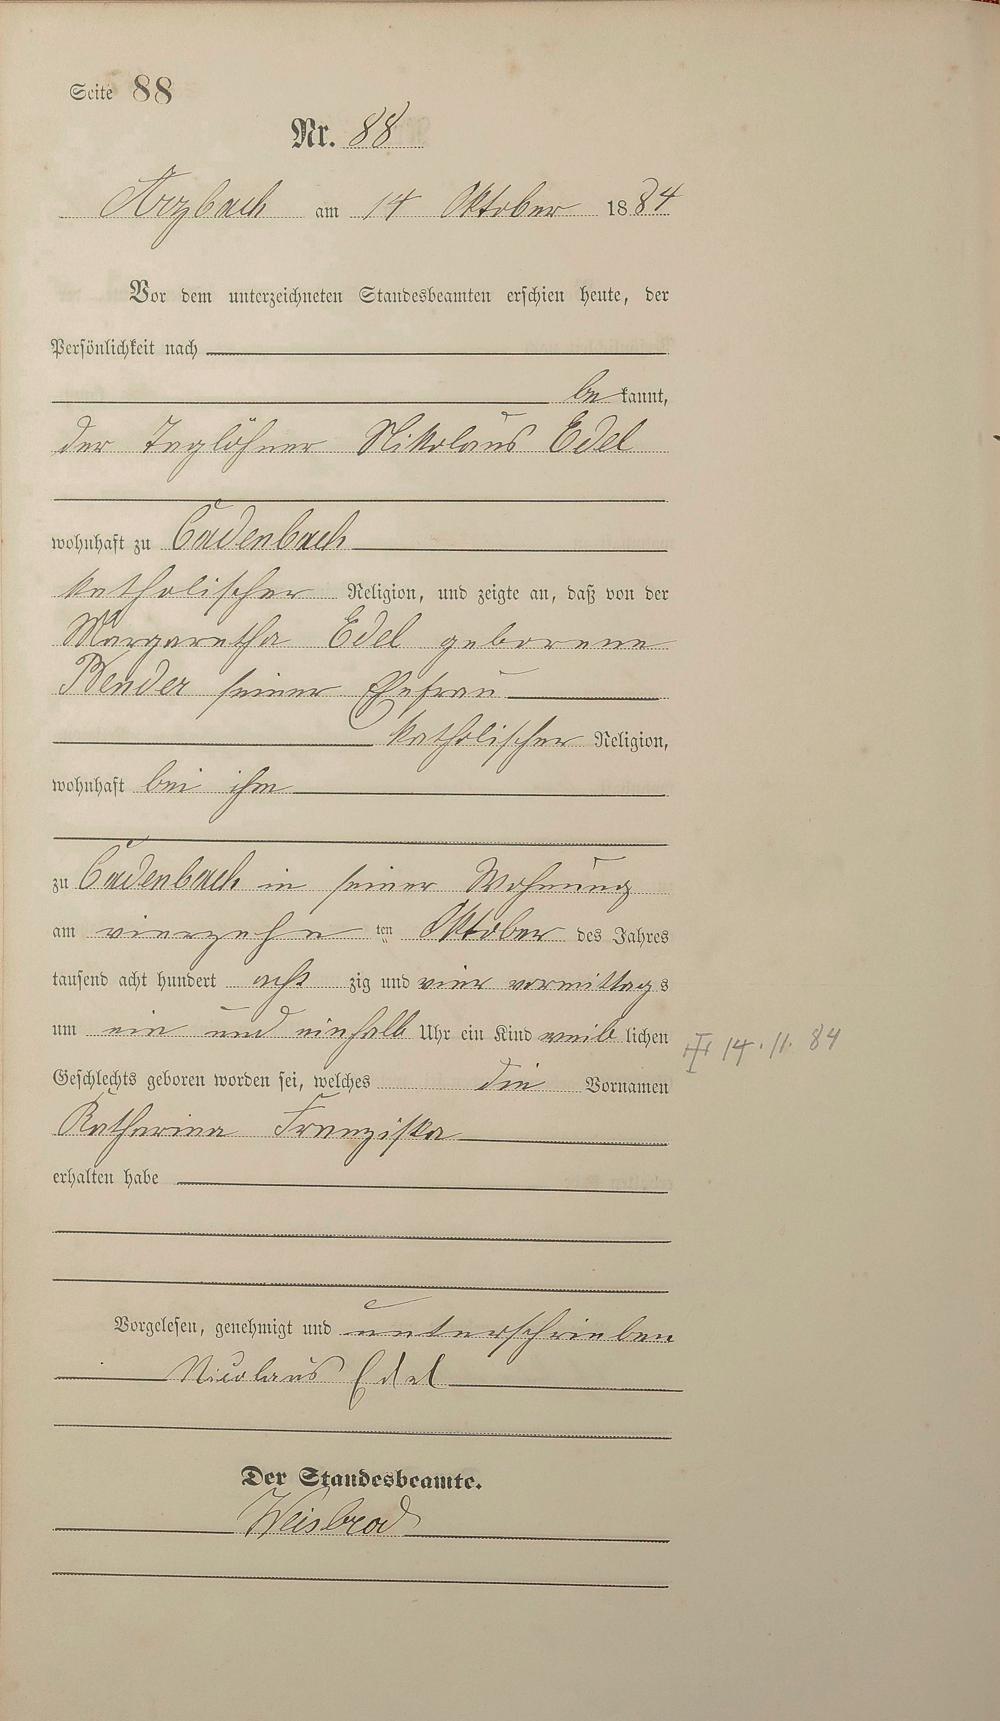 Seite 88
Nr. 88
Arzbach am 14 Oktober 1884
Vor dem unterzeichneten Standesbeamten erschien heute, der
Persönlichkeit nach
bekannt,
der Taglöhner Nikolaus Edel
wohnhaft zu Cadenbach
katholischer Religion, und zeigte an, daß von der
Margaretha Edel geborene
Bender seiner Ehefrau
katholischer Religion,
wohnhaft bei ihm
zu Cadenbach in seiner Wohnung
am vierzehn ten Oktober des Jahres
tausend acht hundert acht zig und vier vormittags
um ein und einhalb Uhr ein Kind weiblichen
Geschlechts geboren worden sei, welches die Vornamen
Katharina Franziska
erhalten habe
Vorgelesen, genehmigt und unterschrieben
Nicolaus Edel
Der Standesbeamte.
Weisbrod
14.11.84